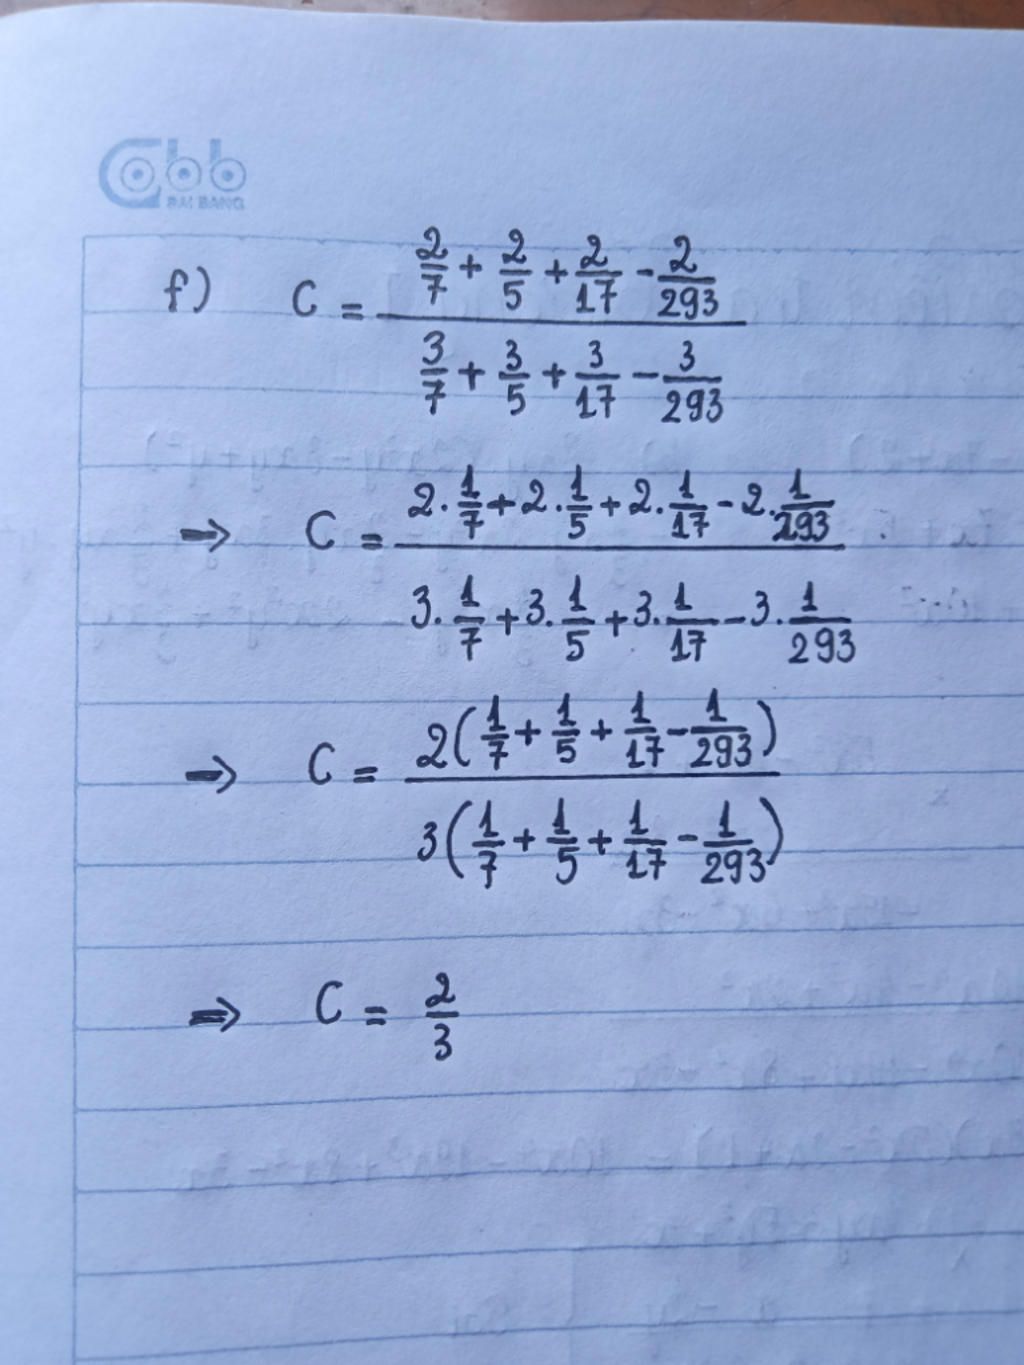 abb
BAI BANG
f) C = \frac{\frac{2}{7} + \frac{2}{5} + \frac{2}{17} - \frac{2}{293}}{\frac{3}{7} + \frac{3}{5} + \frac{3}{17} - \frac{3}{293}}
⇒ C = \frac{2 \cdot \frac{1}{7} + 2 \cdot \frac{1}{5} + 2 \cdot \frac{1}{17} - 2 \cdot \frac{1}{293}}{3 \cdot \frac{1}{7} + 3 \cdot \frac{1}{5} + 3 \cdot \frac{1}{17} - 3 \cdot \frac{1}{293}}
⇒ C = \frac{2 \left( \frac{1}{7} + \frac{1}{5} + \frac{1}{17} - \frac{1}{293} \right)}{3 \left( \frac{1}{7} + \frac{1}{5} + \frac{1}{17} - \frac{1}{293} \right)}
⇒ C = \frac{2}{3}